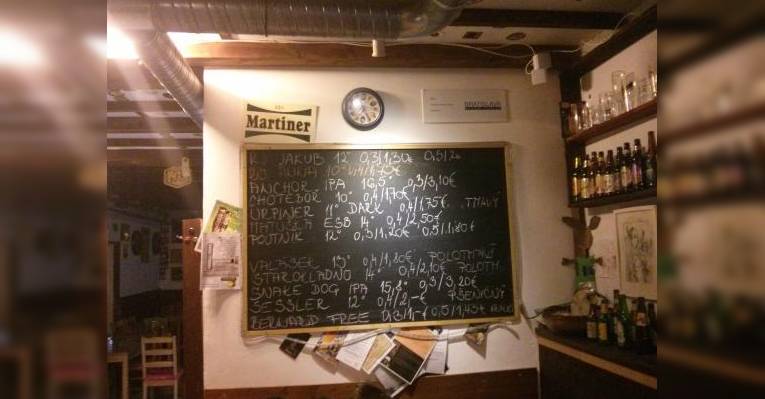 Martiner
BRATISLAVA
JAKUB 12° 0,3/1,30€ 0,5/2€
ANCHOR IPA 16,5° 0,3/3,10€
CHOTEBOŘ 10° 0,4/1,70€
URPINER 11° DARK 0,4/1,75€ TMAVÝ
MATUŠKA ESB 14° 0,4/2,50€
POUTNIK 12° 0,3/1,20€ 0,5/1,80€
VALÁŠEK 13° 0,4/1,80€ POLOTMAVÝ
STAROKLADNO 14° 0,4/2,10€ POLOTM
SNAKE DOG IPA 15,8° 0,3/3,20€
SESSLER 12° 0,4/2,-€ PŠENIČNÝ
BERNARD FREE 0,3/1,-€ 0,5/1,45€